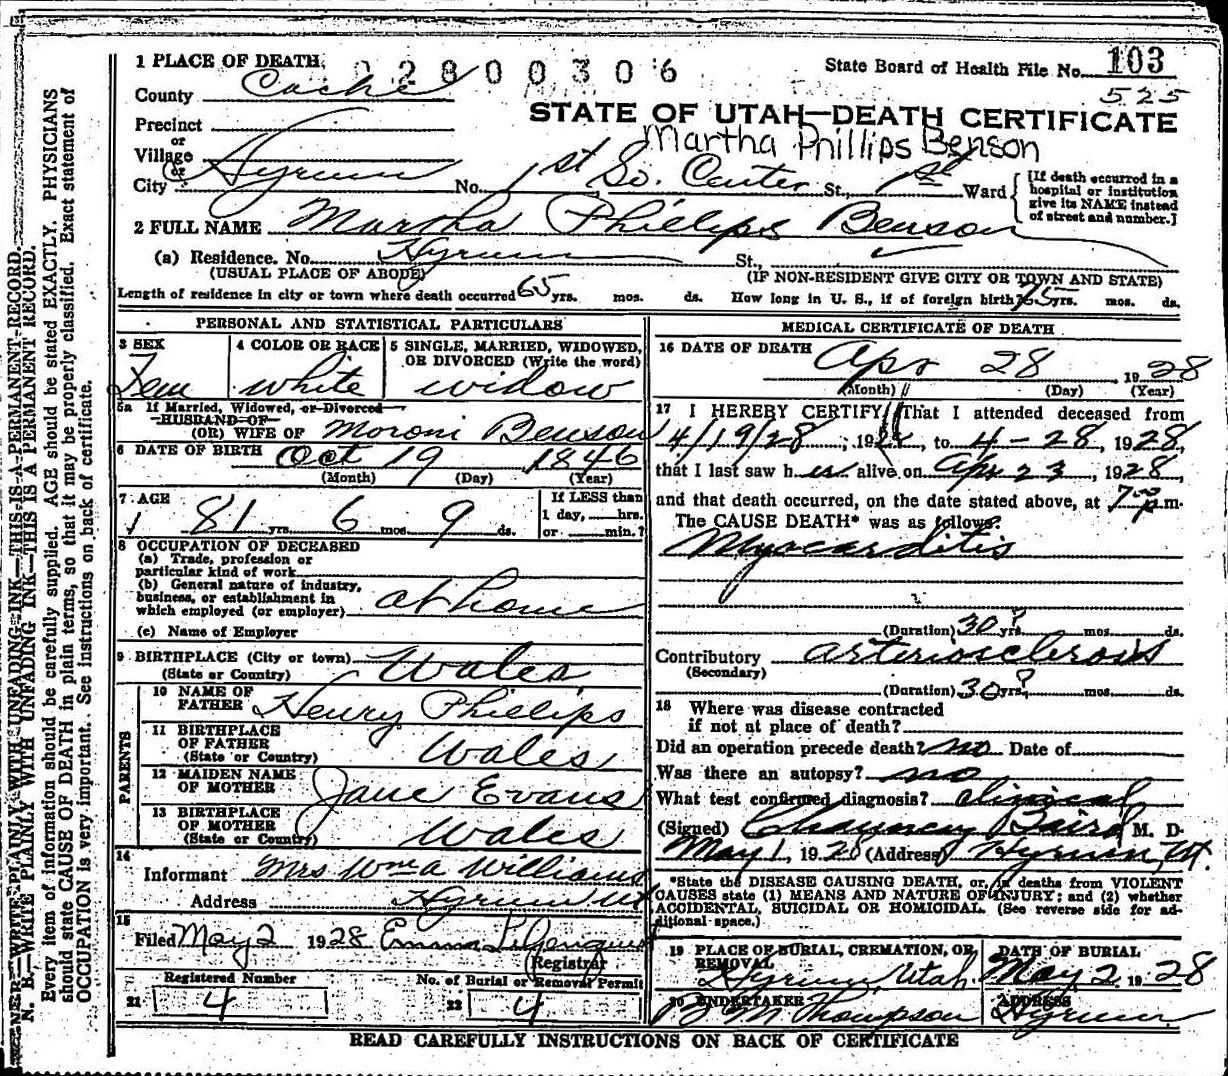 1 PLACE OF DEATH
02800306
State Board of Health File No. 103
525
County Cache
STATE OF UTAH—DEATH CERTIFICATE
Precinct
Martha Phillips Benson
or
Village
or
City Hyrum No. 1st So. Center St., 1st Ward
[If death occurred in a hospital or institution give its NAME instead of street and number.]
2 FULL NAME Martha Phillips Benson
(a) Residence. No. Hyrum St.,
(USUAL PLACE OF ABODE) (IF NON-RESIDENT GIVE CITY OR TOWN AND STATE)
Length of residence in city or town where death occurred 65 yrs. mos. ds. How long in U. S., if of foreign birth? 65 yrs. mos. ds.
PERSONAL AND STATISTICAL PARTICULARS
3 SEX
Fem
4 COLOR OR RACE
white
5 SINGLE, MARRIED, WIDOWED, OR DIVORCED (Write the word)
widow
5a If Married, Widowed, or Divorced
HUSBAND OF
(OR) WIFE OF Moroni Benson
6 DATE OF BIRTH Oct 19 1846
(Month) (Day) (Year)
7 AGE
81 yrs. 6 mos. 9 ds.
If LESS than
1 day, hrs.
or min.?
8 OCCUPATION OF DECEASED
(a) Trade, profession or
particular kind of work
(b) General nature of industry,
business, or establishment in
which employed (or employer) at home
(c) Name of Employer
9 BIRTHPLACE (City or town) Wales
(State or Country)
PARENTS
10 NAME OF
FATHER Henry Phillips
11 BIRTHPLACE
OF FATHER Wales
(State or Country)
12 MAIDEN NAME
OF MOTHER Jane Evans
13 BIRTHPLACE
OF MOTHER Wales
(State or Country)
14
Informant Mrs Wm A Williams
Address Hyrum Ut
15
Filed May 2 1928 Emma
Registrar
Registered Number
21 4
No. of Burial or Removal Permit
22 4
MEDICAL CERTIFICATE OF DEATH
16 DATE OF DEATH
Apr 28, 1928
(Month) (Day) (Year)
17 I HEREBY CERTIFY, That I attended deceased from
4/19/28, 192 , to 4-28, 1928,
that I last saw her alive on Apr 23, 1928,
and that death occurred, on the date stated above, at 7:00 p.m.
The CAUSE DEATH* was as follows:
Myocarditis
(Duration) 30? yrs. mos. ds.
Contributory arteriosclerosis
(Secondary)
(Duration) 30 yrs? mos. ds.
18 Where was disease contracted
if not at place of death?
Did an operation precede death? no Date of
Was there an autopsy? no
What test confirmed diagnosis? clinical
(Signed) Chauncey Baird M. D.
May 1, 1928 (Address) Hyrum, Ut.
*State the DISEASE CAUSING DEATH, or, in deaths from VIOLENT
CAUSES state (1) MEANS AND NATURE OF INJURY; and (2) whether
ACCIDENTAL, SUICIDAL OR HOMICIDAL. (See reverse side for additional space.)
19 PLACE OF BURIAL, CREMATION, OR
REMOVAL
Hyrum, Utah
DATE OF BURIAL
May 2 1928
20 UNDERTAKER
B M Thompson
ADDRESS
Hyrum
READ CAREFULLY INSTRUCTIONS ON BACK OF CERTIFICATE
N. B.—WRITE PLAINLY WITH UNFADING INK—THIS IS A PERMANENT RECORD.
Every item of information should be carefully supplied. AGE should be stated EXACTLY. PHYSICIANS
should state CAUSE OF DEATH in plain terms, so that it may be properly classified. Exact statement of
OCCUPATION is very important. See instructions on back of certificate.